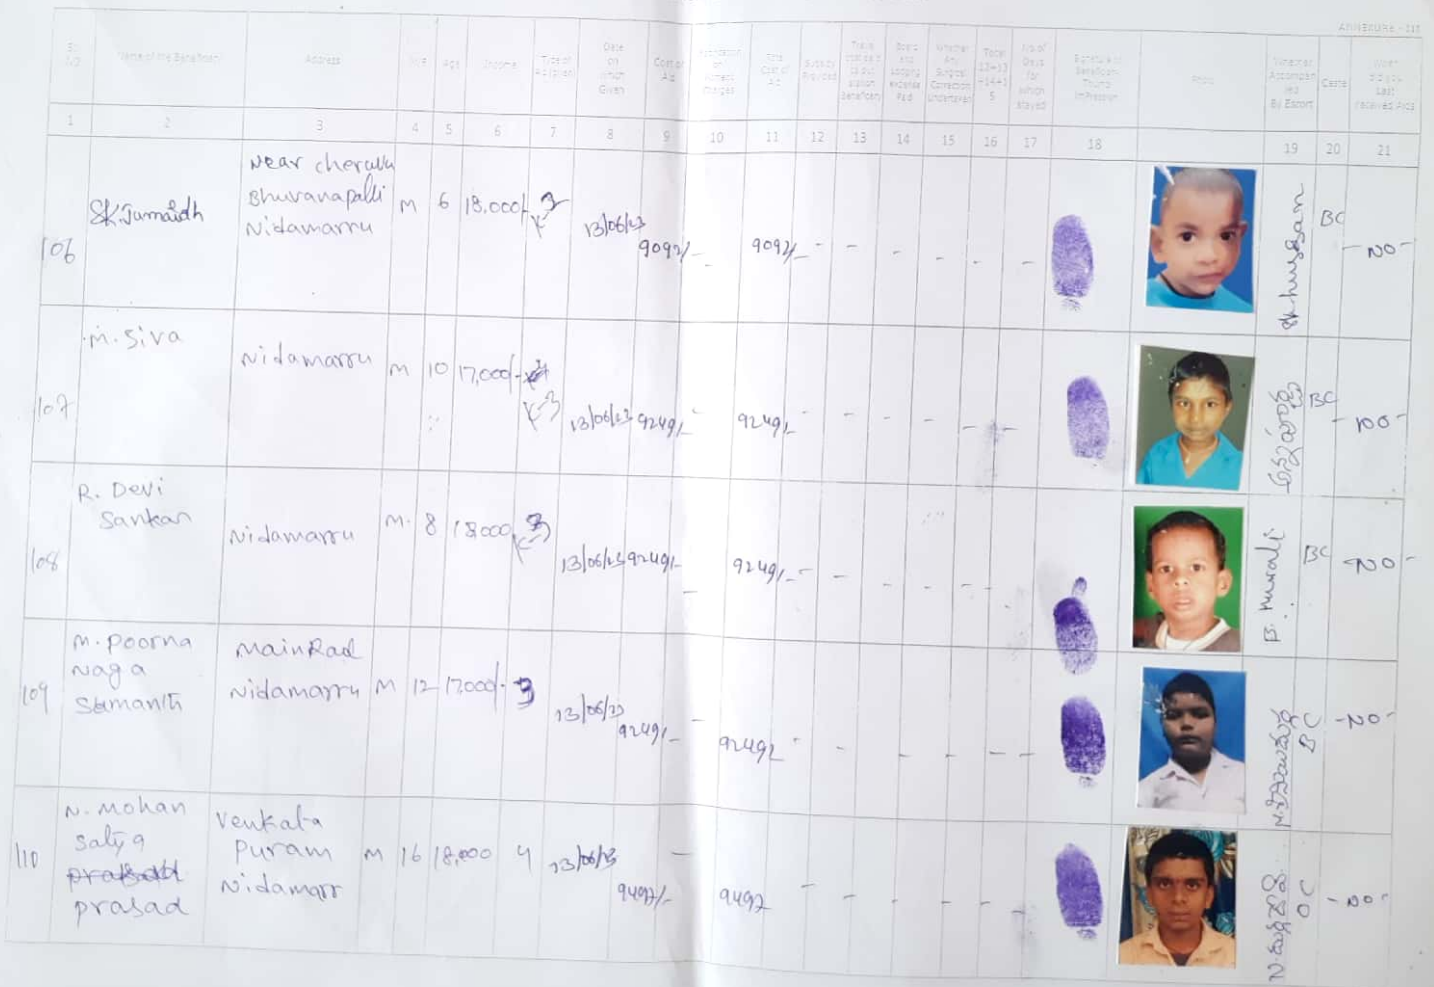 ANNEXURE - III
Sl. No
Name of the Beneficiary
Address
Age
Income
Type of Aid (given)
Date on which Given
Cost of Aid
Total Cost of Aid
Subsidy Provided
Board and Lodging expense Paid
Whether Any Surgical Correction Undertaken
Total 12+13 +14+1 5
No of Days for which stayed
Signature of Beneficiary Thumb Impression
Photo
Whether Accompan ied By Escort
Caste
1 2 3 4 5 6 7 8 9 10 11 12 13 14 15 16 17 18 19 20 21
106
Near cheruvu
Bhuvanapalli
Nidamarru
M 6 18,000/- 3
13/06/23
9092/- 9092/-
BC
- NO -
107
M. Siva
Nidamarru M 10 17,000/-
13/06/23 9249/- 9249/-
BC
- NO -
108
R. Devi
Sankar
Nidamarru M. 8 18,000 3
13/06/23 9249/- 9249/-
B. Murali
BC
- NO -
109
M. Poorna
Naga
Sumanth
Main Rad
Nidamarru M 12 17000/- 3
13/06/23
9249/- 9249/-
BC
- NO -
110
N. Mohan
Satya
prasad
Venkata
Puram
Nidamarr
M 16 18,000 4 13/06/23
9497/- 9497
OC
- NO -